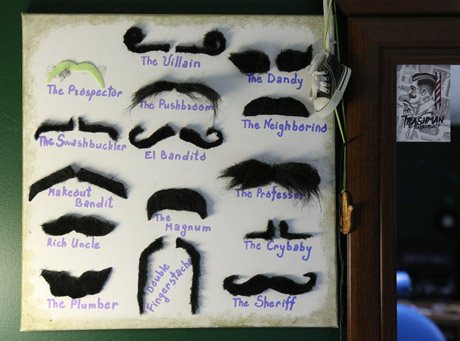 The Villain
The Dandy
The Prospector
The Pushbroom
The Neighborino
The Swashbuckler
El Bandito
Makeout
Bandit
The Professor
The
Magnum
Rich Uncle
The Crybaby
Double
Fingerstache
The Plumber
The Sheriff
TRASHMAN